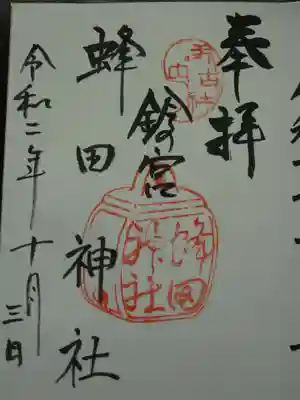 奉拝
鈴宮
蜂田神社
令和二年十月三日
蜂田
神社